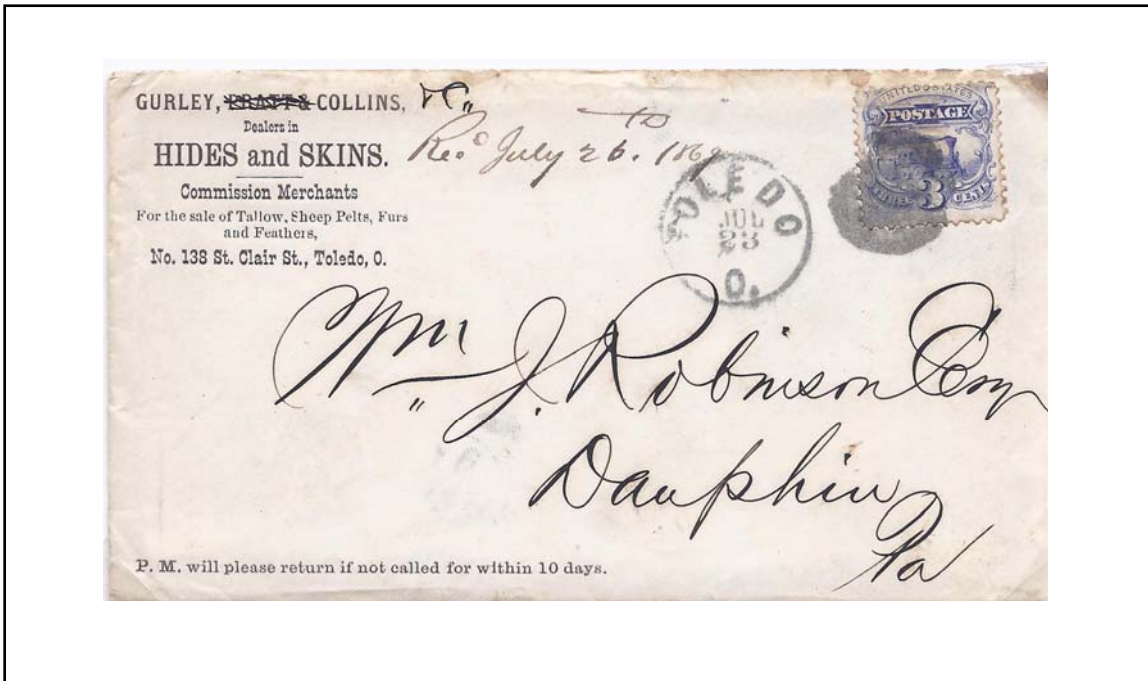 GURLEY, PRATT & COLLINS,
Dealers in
HIDES and SKINS.
Commission Merchants
For the sale of Tallow, Sheep Pelts, Furs
and Feathers,
No. 138 St. Clair St., Toledo, O.
Rec'd July 26. 1869
UNITED STATES
POSTAGE
THREE 3 CENTS
TOLEDO
JUL
23
O.
Wm J. Robinson Esq
Dauphin
Pa
P. M. will please return if not called for within 10 days.